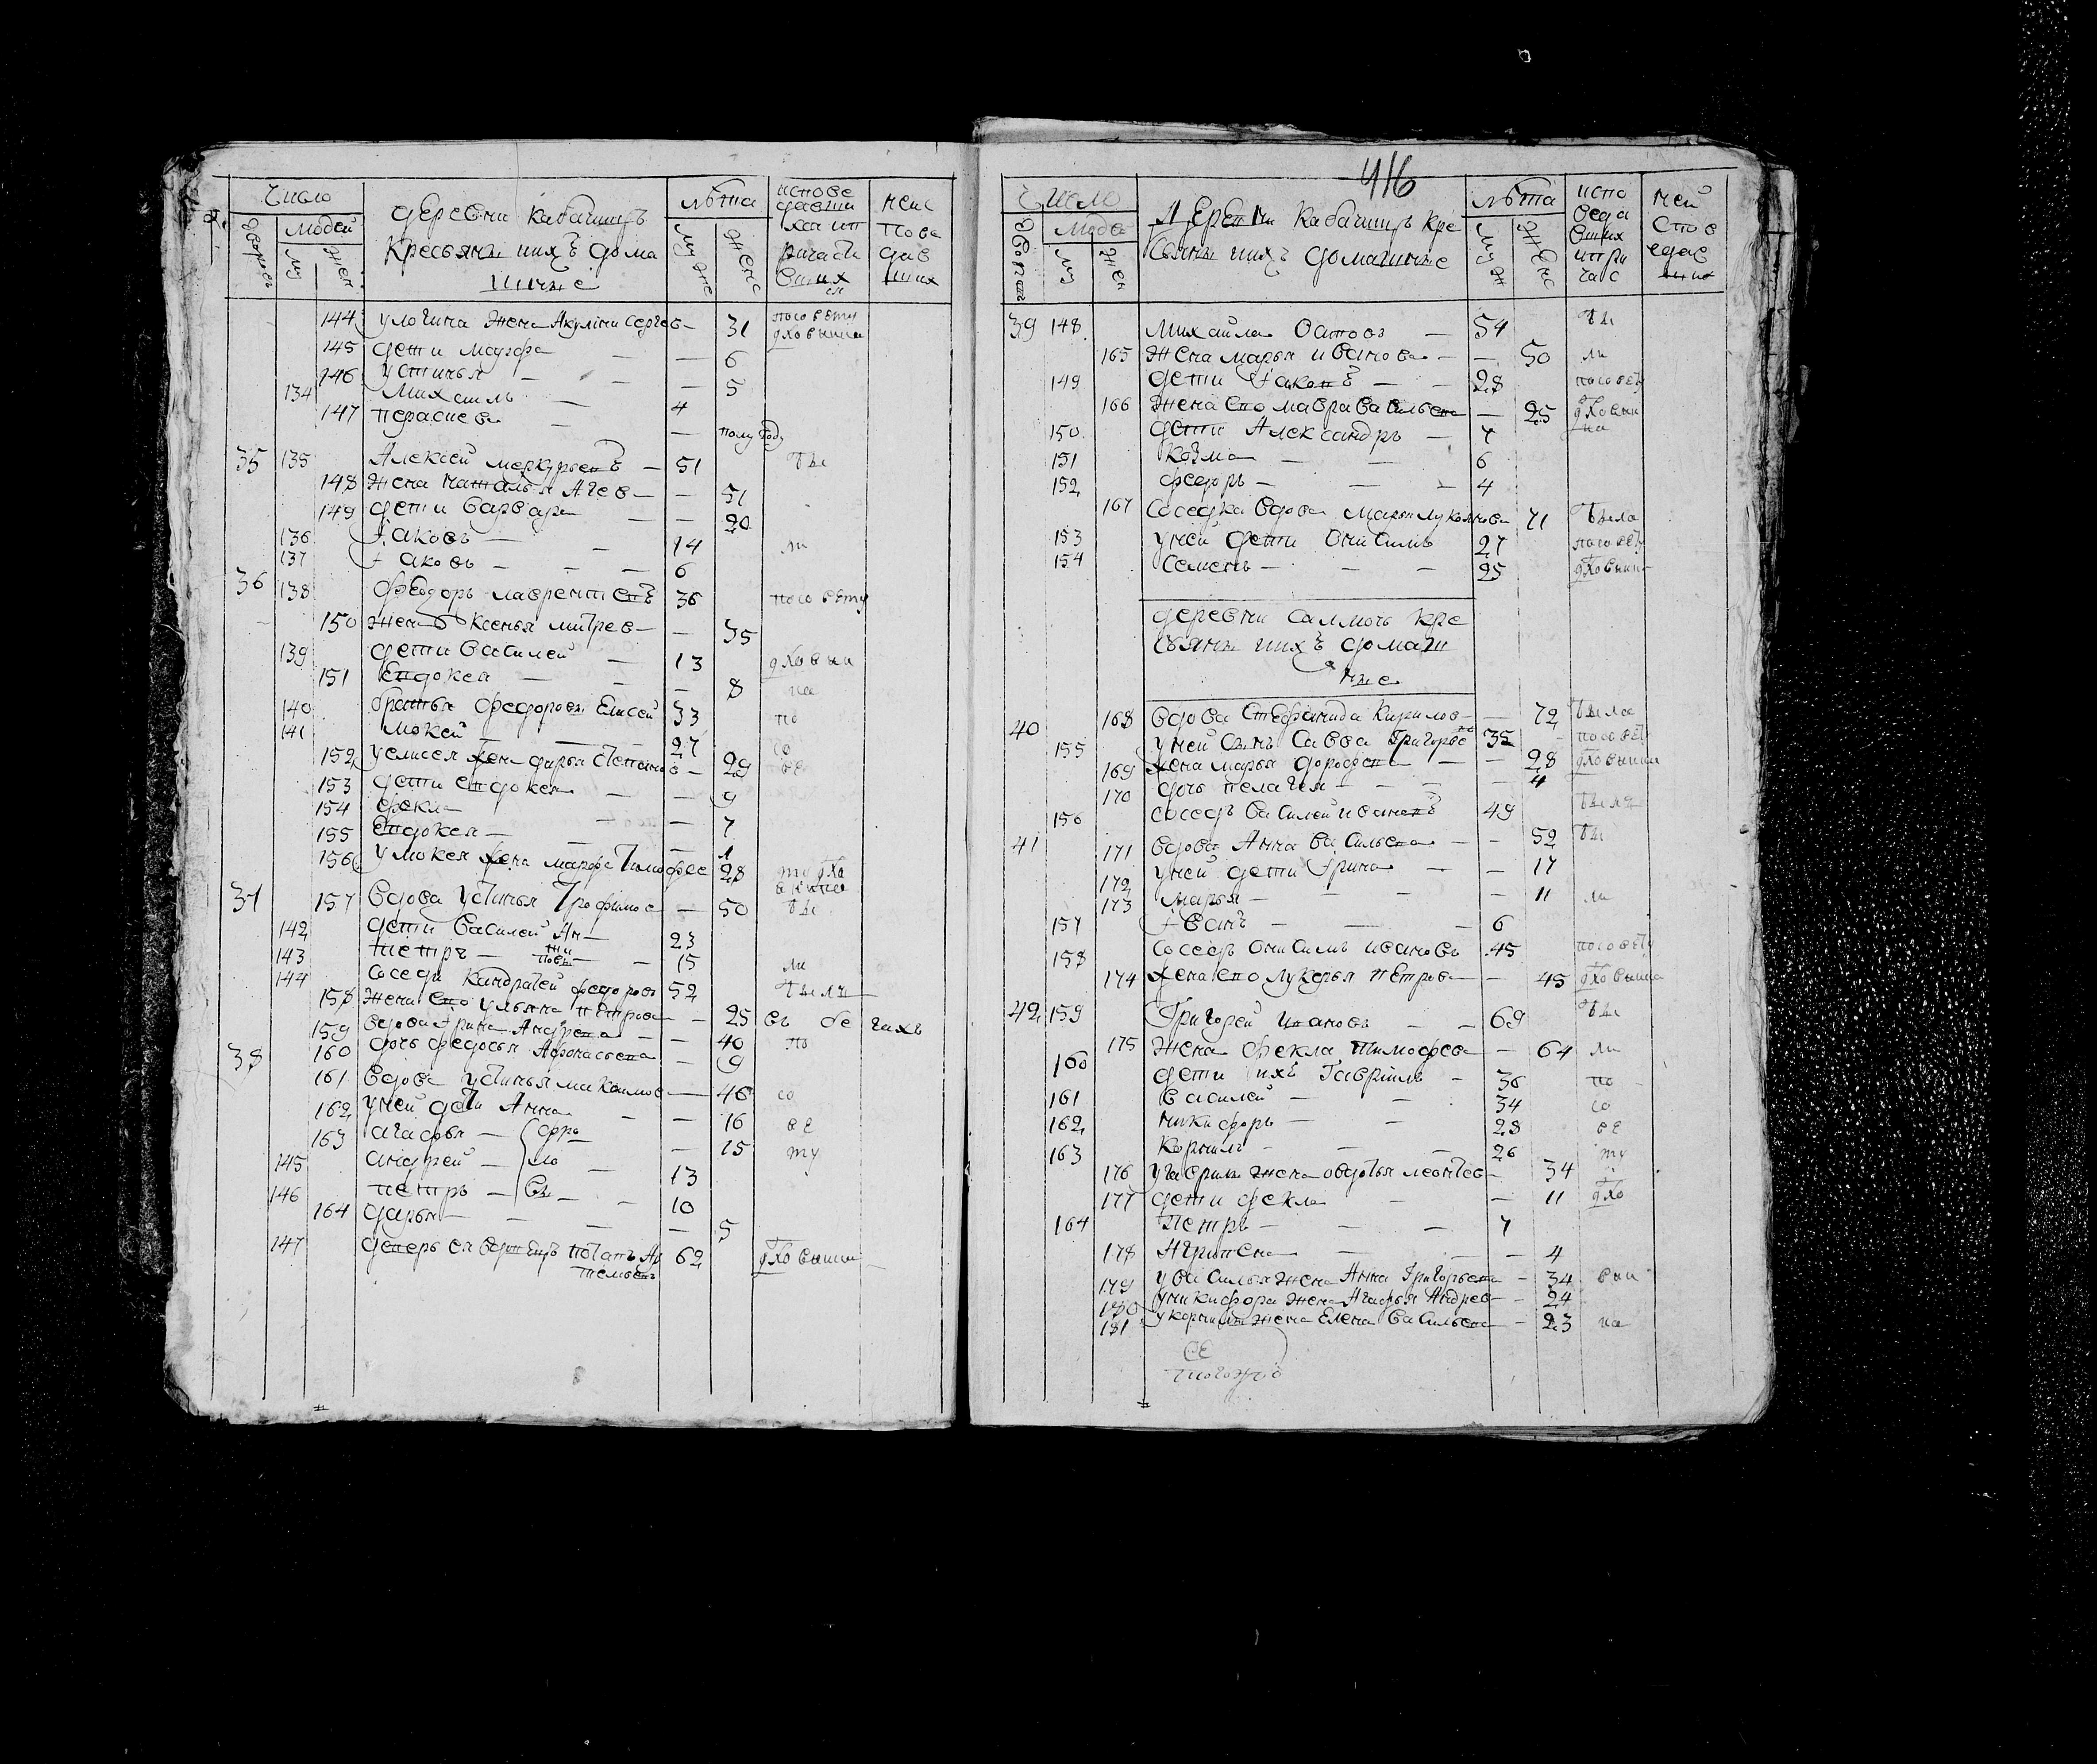 Число
людей
дворовъ
му
жен
деревни Кабачищъ
Кресьянъ ихъ дома
шные
лѣта
муже
женс
испове
давши
хсѧ ип
ричасти
вших
сѧ
неис
пове
дав
ших
144 у логина жена Акулина Сергев 31 посовету
дховника
145 дети марфа 6
146 устинья 5
134 Михаилъ 4
147 парасиева полугоду
35 135 Алексей меркурьевъ 51 бы
148 жена наталья Агев 51
149 дети варвара 20
136 Iаковъ 14 ли
137 Iаковъ 6
36 138 Феодоръ лаврентиевъ 36 посовету
150 жена Ксенья митрев 35
139 дети василей 13 дховни
151 Евдокея 8 ка
140 братья федоровы Елисей 33 по
141 мокей 27 со
152 у елисея жена дарья Степано 29 ве
153 дети евдокея 9
154 фекла 7
155 евдокея 1
156 у мокея жена марфа Тимофее 28 ту дхо
вника
37 157 вдова устинья Трофимов 50 бы
142 дети василей Ан 23
143 петръ 15 ли
144 соседи Кандратей федоровъ 52 были
158 жена ево ульяна петрова 25 въ бе гахъ
159 вдова Ирина Андреева 40 по
38 160 дочь федосья Афонасьева 9
161 вдова устинья макаимов 46 со
162 у ней дети Анна 16 ве
163 агафья фро 15 ту
145 андрей ло 13
146 петръ вы 10
164 дарья 5
147 деверь ея вдовецъ потапъ Ар 62 дховника
темьевъ
416
Число
людей
дворовъ
му
жен
Деревни Кабачищъ кре
сьянъ ихъ домашные
лѣта
муж
женс
испо
веда
вших
ипри
час
неи
спов
едав
ших
39 148 михайла Осиповъ 54 бы
165 жена марья иванова 50 ли
149 дети Iаковъ 28 посовету
166 жена ево мавра васильева 25 дховни
ка
150 дети Александръ 7
151 Козма 6
152 федоръ 4
167 соседка вдова марья лукоянова 71 была
153 у ней дети онисимъ 27 посовету
154 семенъ 25 дховника
деревни саллочь кре
сьянъ ихъ домаш
ные
40 168 вдова Стефанида Кирилов 72 была
155 у ней сынъ Савва Григорьевъ 35 посовету
169 жена марья дорофеева 28 дховника
170 дочь пелагея 4
156 соседъ василей ивановъ 49 былъ
41 171 вдова Анна васильева 52 бы
172 у ней дети Ирина 17
173 марья 11 ли
157 Iванъ 6
158 соседъ онисимъ ивановъ 45 посовету
174 жена ево лукерья петрова 45 дховника
42 159 Григорей ивановъ 69 бы
175 жена фекла тимофеева 64 ли
160 дети ихъ гаврiилъ 36 по
161 василей 34 со
162 никифоръ 28 ве
163 корнилъ 26 ту
176 у гаврилы жена овдотья леонтев 34
177 дети фекла 11 дхо
164 петръ 7
178 Агрипена 4
179 у василья жена Анна Григорьева 34 вни
180 у никифора жена Агафья Андрев 24
181 у корнила жена Елена васильева 23 ка